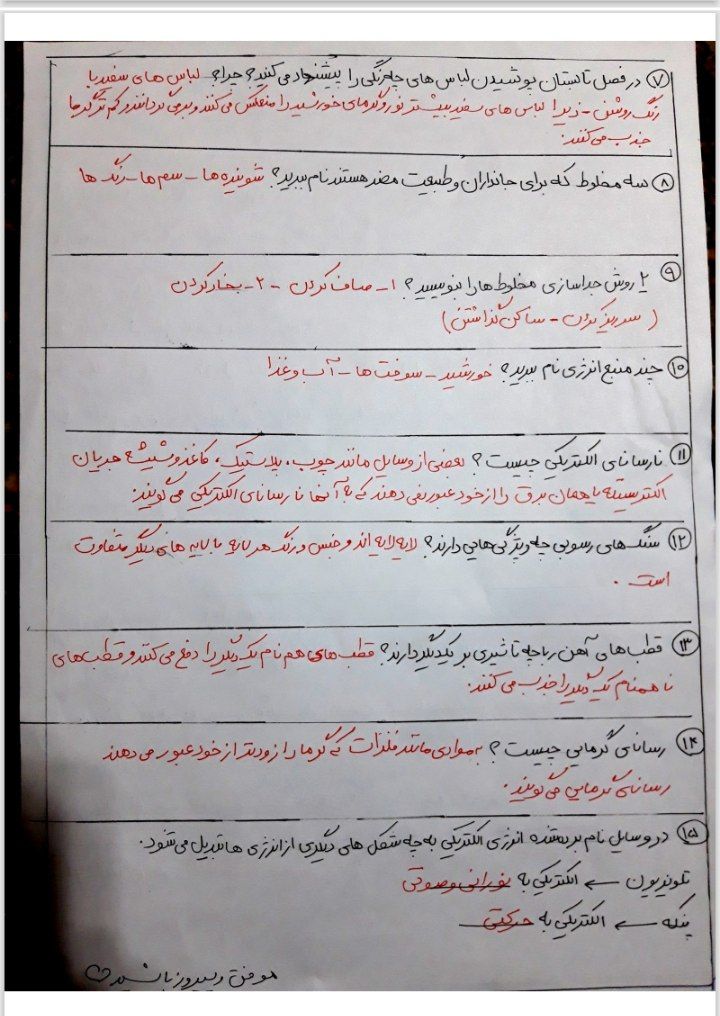 ۷) در فصل تابستان پوشیدن لباس های چه رنگی را پیشنهاد می کنید؟ چرا؟ لباس های سفید یا
رنگ روشن - زیرا لباس های سفید بیشتر نور و گرمای خورشید را منعکس می کنند و برمی گردانند و کم تر گرما
جذب می کنند.
۸) سه مخلوط که برای جانداران و طبیعت مضر هستند نام ببرید؟ شوینده ها - سم ها - رنگ ها
۹) ۲ روش جداسازی مخلوط ها را بنویسید؟ ۱- صاف کردن - ۲- بخار کردن
( سرریز کردن - ساکن گذاشتن )
۱۰) چند منبع انرژی نام ببرید؟ خورشید - سوخت ها - آب و غذا
۱۱) نارسانای الکتریکی چیست؟ بعضی از وسایل مانند چوب، پلاستیک، کاغذ و شیشه جریان
الکتریسیته یا همان برق را از خود عبور نمی دهند که به آنها نارسانای الکتریکی می گویند.
۱۲) سنگ های رسوبی چه ویژگی هایی دارند؟ لایه لایه اند و جنس و رنگ هر لایه با لایه های دیگر متفاوت
است .
۱۳) قطب های آهن ربا چه تاثیری بر یکدیگر دارند؟ قطب های هم نام یکدیگر را دفع می کنند و قطب های
ناهمنام یکدیگر را جذب می کنند.
۱۴) رسانای گرمایی چیست؟ به موادی مانند فلزات که گرما را زودتر از خود عبور می دهند
رسانای گرمایی می گویند.
۱۵) در وسایل نام برده شده انرژی الکتریکی به چه شکل های دیگری از انرژی ها تبدیل می شود.
تلویزیون ← الکتریکی به نورانی و صوتی
پنکه ← الکتریکی به حرکتی
موفق و پیروز باشید